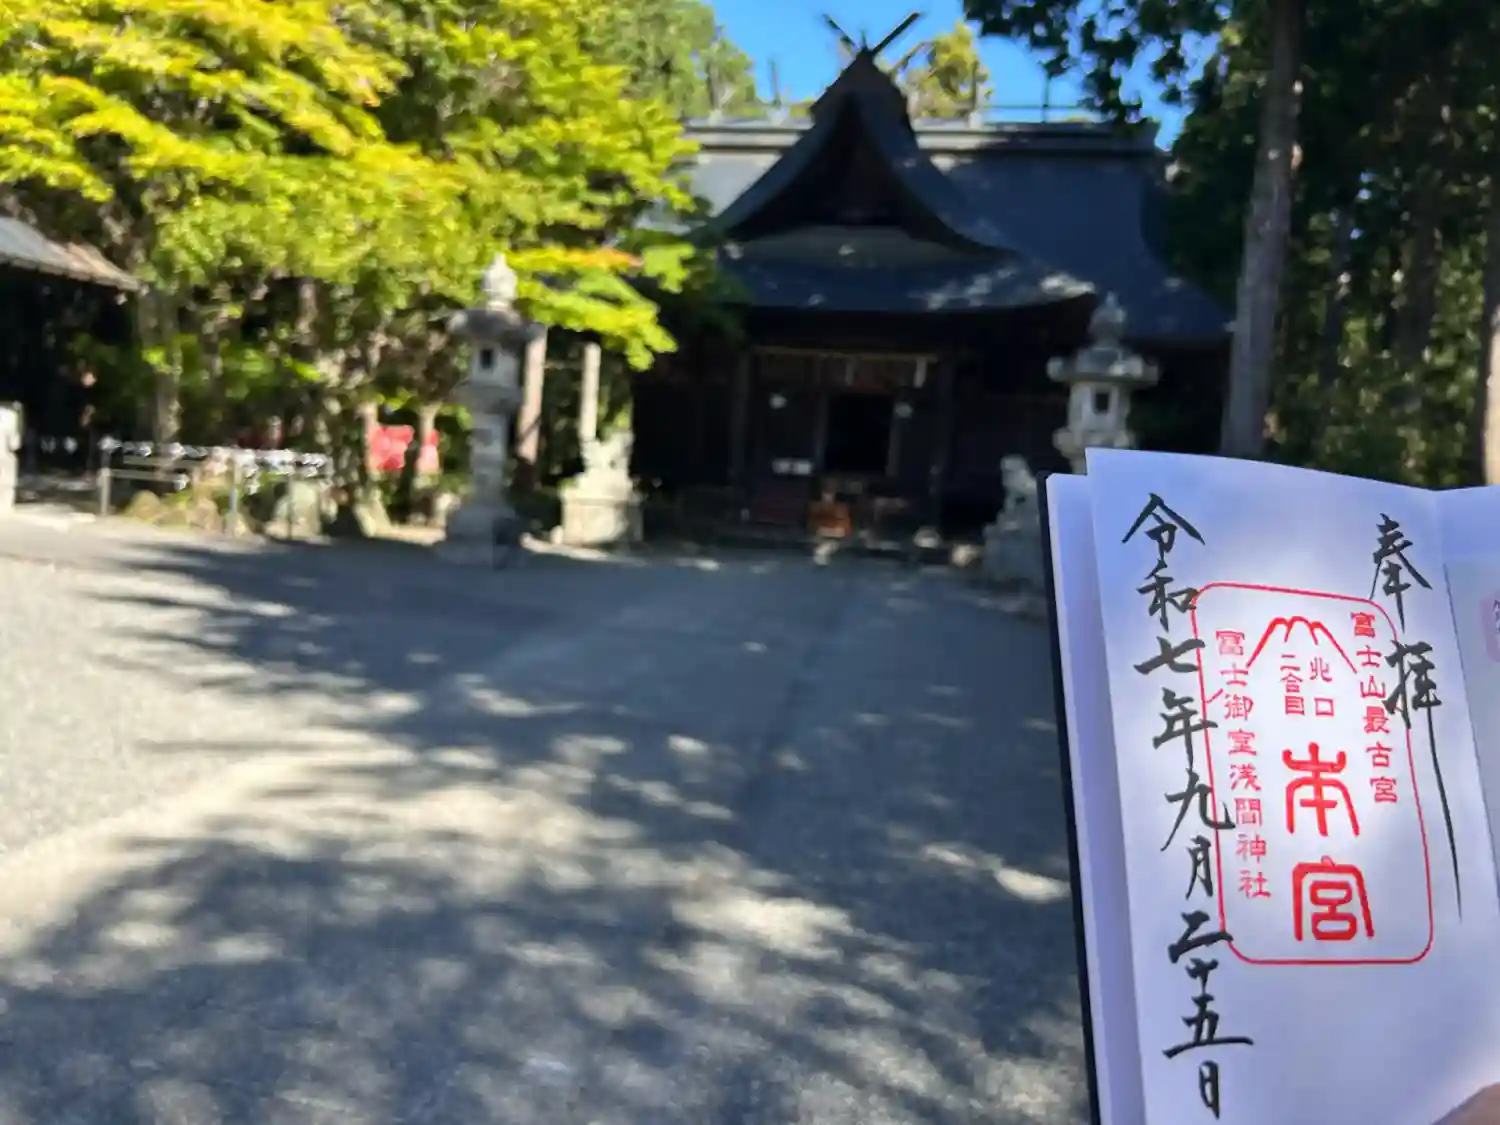 奉拝
富士山最古宮
北口
二合目
本宮
冨士御室浅間神社
令和七年九月二十五日